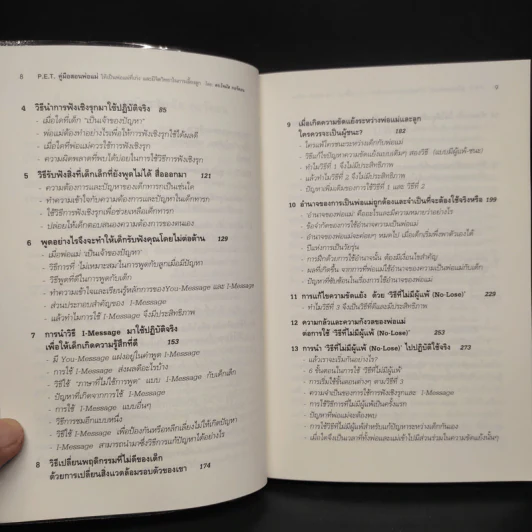 8 P.E.T. คู่มือสอนพ่อแม่
4 วิธีนำการฟังเชิงรุกมาใช้ปฏิบัติจริง 85
- เมื่อใดที่เด็ก "เป็นเจ้าของปัญหา"
- พ่อแม่ต้องทำอย่างไรเพื่อให้การฟังเชิงรุกใช้ได้ผลดี
- เมื่อใดที่พ่อแม่ควรใช้การฟังเชิงรุก
- ความผิดพลาดที่พบได้บ่อยในการใช้วิธีการฟังเชิงรุก
5 วิธีรับฟังสิ่งที่เด็กเล็กที่ยังพูดไม่ได้ สื่อออกมา 121
- ความต้องการและปัญหาของเด็กทารกเป็นเช่นใด
- ทำความเข้าใจกับความต้องการและปัญหาในเด็กทารก
- ใช้วิธีการฟังเชิงรุกเพื่อช่วยเหลือเด็กทารก
- ปล่อยให้เด็กตอบสนองความต้องการของตนเอง
6 พูดอย่างไรจึงจะทำให้เด็กรับฟังคุณโดยไม่ต่อต้าน 129
- เมื่อพ่อแม่ "เป็นเจ้าของปัญหา"
- วิธีการที่ "ไม่เหมาะสมในการพูดกับลูกเมื่อมีปัญหา
- วิธีพูดที่ดีในการพูดกับเด็ก
- ทำความเข้าใจและเรียนรู้หลักการของ You-Message และ I-Message
- ส่วนประกอบสำคัญของ I-Message
- แล้วทำไมการใช้ I-Message จึงมีประสิทธิภาพ
7 การนำวิธี I-Message มาใช้ปฏิบัติจริง
เพื่อให้เด็กเกิดความรู้สึกที่ดี 153
- มี You-Message แฝงอยู่ในคำพูด I-Message
- การใช้ I-Message ส่งผลดีอะไรบ้าง
- วิธีใช้ "ภาษาที่ไม่ใช้การพูด" แบบ I-Message กับเด็กเล็ก
- ปัญหาที่เกิดจากการใช้ I-Message
- การใช้ I-Message แบบอื่นๆ
- วิธีการชมอีกแบบหนึ่ง
- วิธีใช้ I-Message เพื่อป้องกันหรือหลีกเลี่ยงไม่ให้เกิดปัญหา
- I-Message สามารถนำมาซึ่งวิธีการแก้ปัญหาได้อย่างไร
8 วิธีเปลี่ยนพฤติกรรมที่ไม่ดีของเด็ก
ด้วยการเปลี่ยนสิ่งแวดล้อมรอบตัวของเขา 174
9
9 เมื่อเกิดความขัดแย้งระหว่างพ่อแม่และลูก
ใครควรจะเป็นผู้ชนะ? 182
- ใครแพ้ใครชนะระหว่างเด็กกับพ่อแม่
- วิธีแก้ไขปัญหาความขัดแย้งแบบเดิมๆ สองวิธี (แบบมีผู้แพ้-ชนะ)
- ทำไมวิธีที่ 1 จึงไม่มีประสิทธิภาพ
- แล้วทำไมวิธีที่ 2 จึงไม่มีประสิทธิภาพ
- ปัญหาเพิ่มเติมของการใช้วิธีที่ 1 และ วิธีที่ 2
10 อำนาจของการเป็นพ่อแม่ถูกต้องและจำเป็นที่จะต้องใช้จริงหรือ 199
- อำนาจของพ่อแม่ คืออะไรและมีความหมายว่าอย่างไร
- ข้อจำกัดของการใช้อำนาจความเป็นพ่อแม่
- อำนาจของพ่อแม่จะค่อยๆ หมดไป เมื่อเด็กเริ่มพึ่งพาตัวเองได้
- ปีแห่งการเป็นวัยรุ่น
- การฝึกด้วยการใช้อำนาจนั้น ต้องมีเงื่อนไขสำคัญ
- ผลที่เกิดขึ้น จากการที่พ่อแม่ใช้อำนาจของความเป็นพ่อแม่กับเด็ก
- ปัญหาที่ซับซ้อนในเรื่องการใช้อำนาจของพ่อแม่
11 การแก้ไขความขัดแย้ง ด้วย 'วิธีที่ไม่มีผู้แพ้ (No-Lose)' 229
- ทำไมวิธีที่ 3 จึงเป็นวิธีที่ดีและมีประสิทธิภาพ
12 ความกลัวและความกังวลของพ่อแม่
ต่อการใช้ 'วิธีที่ไม่มีผู้แพ้ (No-Lose)' 253
13 การนำ 'วิธีที่ไม่มีผู้แพ้ (No-Lose)' ไปปฏิบัติใช้จริง 273
- แล้วเราจะเริ่มกันอย่างไร?
- 6 ขั้นตอนในการใช้ 'วิธีที่ไม่มีผู้แพ้'
- การเริ่มใช้ขั้นตอนต่างๆ ตามวิธีที่ 3
- ความจำเป็นของการใช้การฟังเชิงรุกและ I-Message
- การใช้วิธีการที่ไม่มีผู้แพ้เป็นครั้งแรก
- ปัญหาที่พ่อแม่จะต้องพบ
- การใช้วิธีการที่ไม่มีผู้แพ้สำหรับแก้ปัญหาระหว่างเด็กกันเอง
- เมื่อใดจึงเป็นเวลาที่ทั้งพ่อและแม่เข้าไปมีส่วนร่วมในความขัดแย้งนั้นๆ